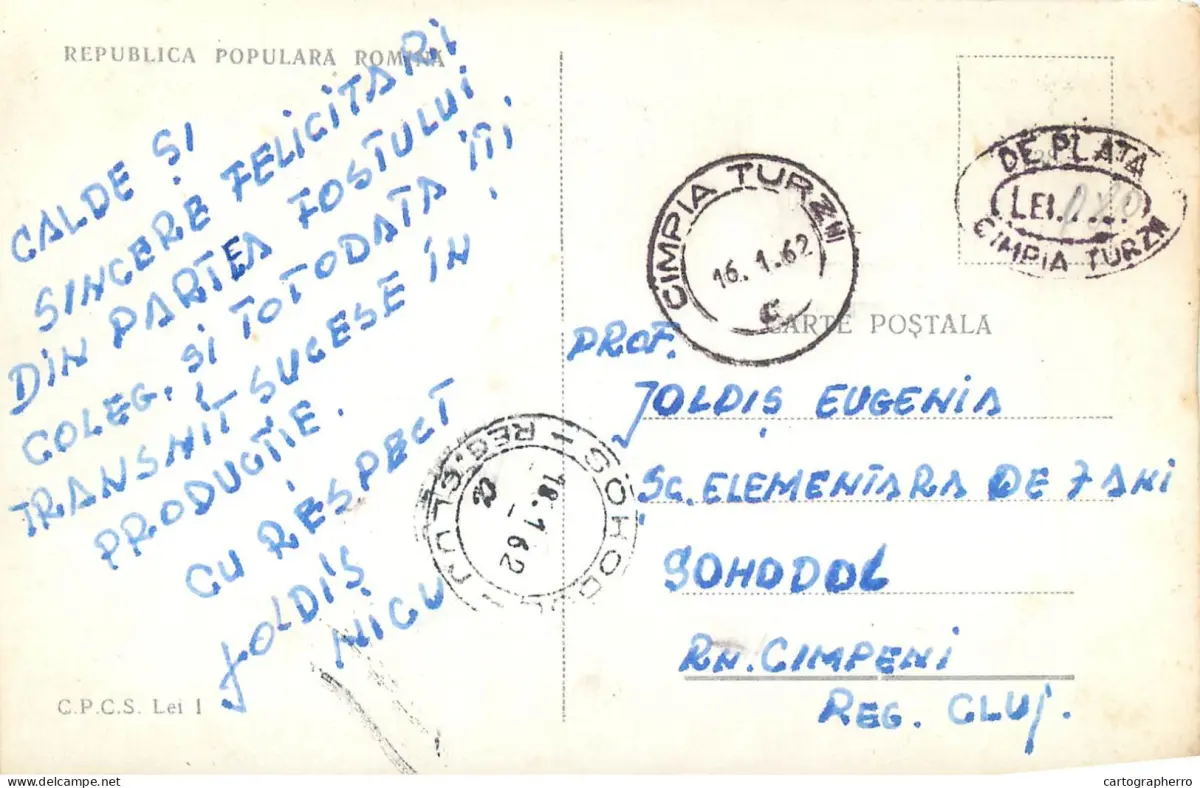 REPUBLICA POPULARĂ ROMÎNĂ
CALDE SI
SINCERE FELICITARI
DIN PARTEA FOSTULUI
COLEG. SI TOTODATA ÎTI
TRANSMIT SUCCESE ÎN
PRODUCTIE.
CU RESPECT
JOLDIȘ
NICU
C.P.C.S. Lei 1
DE PLATA
LEI.....
CIMPIA TURZII
CIMPIA TURZII
16.1.62
CARTE POȘTALĂ
PROF.
JOLDIȘ EUGENIA
ȘC. ELEMENTARA DE 7 ANI
SOHODOL
RN. CIMPENI
REG. CLUJ.
SOHODOL
18.1.62
www.delcampe.net
cartographerro